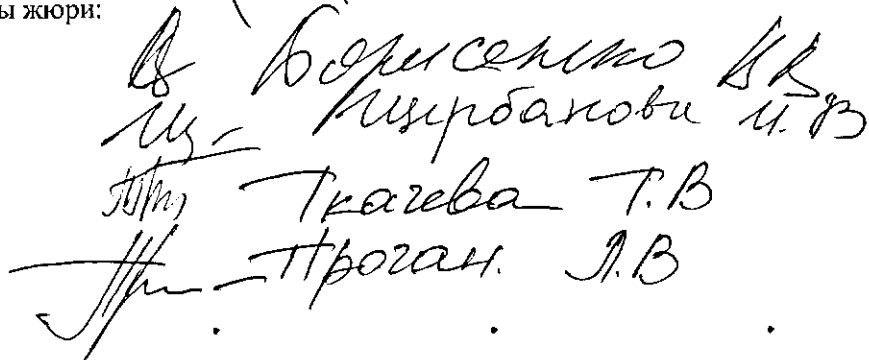 ы жюри:
Борисенко В.В.
Щербанова И.В
Ткачева Т.В
Проган. Л.В